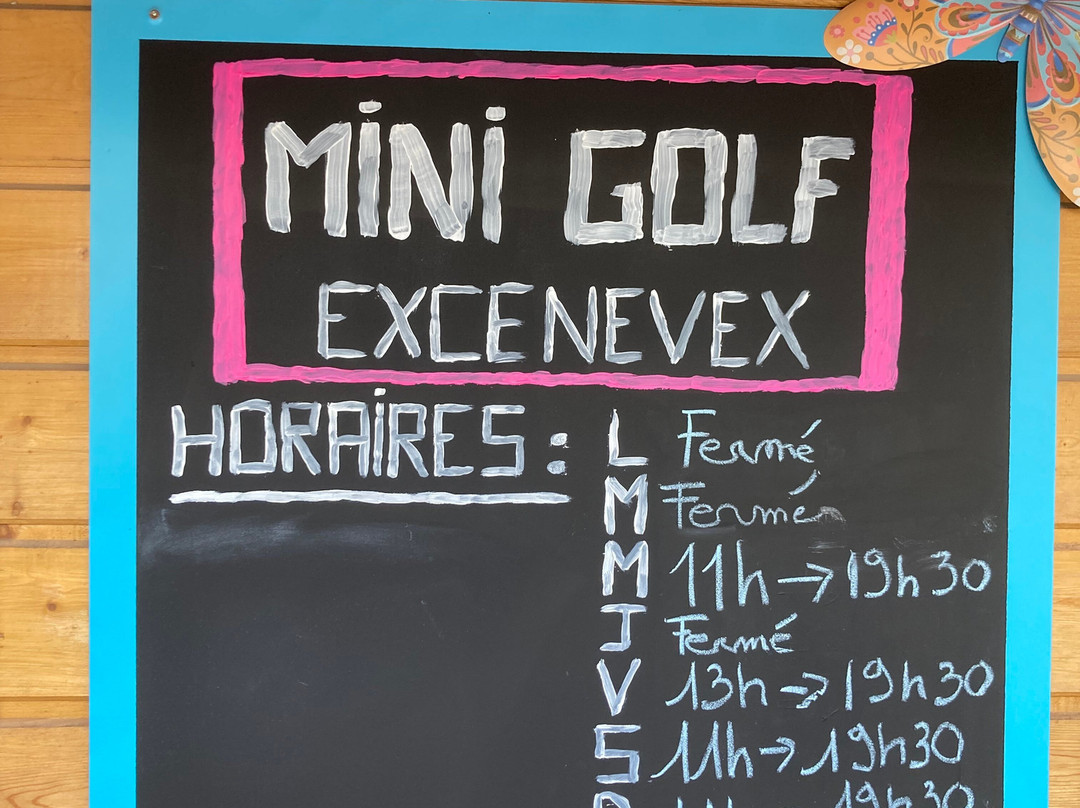 MiNi GOLF
EXCENEVEX
HORAiRES :
L Fermé
M Fermé
M 11h → 19h30
J Fermé
V 13h → 19h30
S 11h → 19h30
19h30